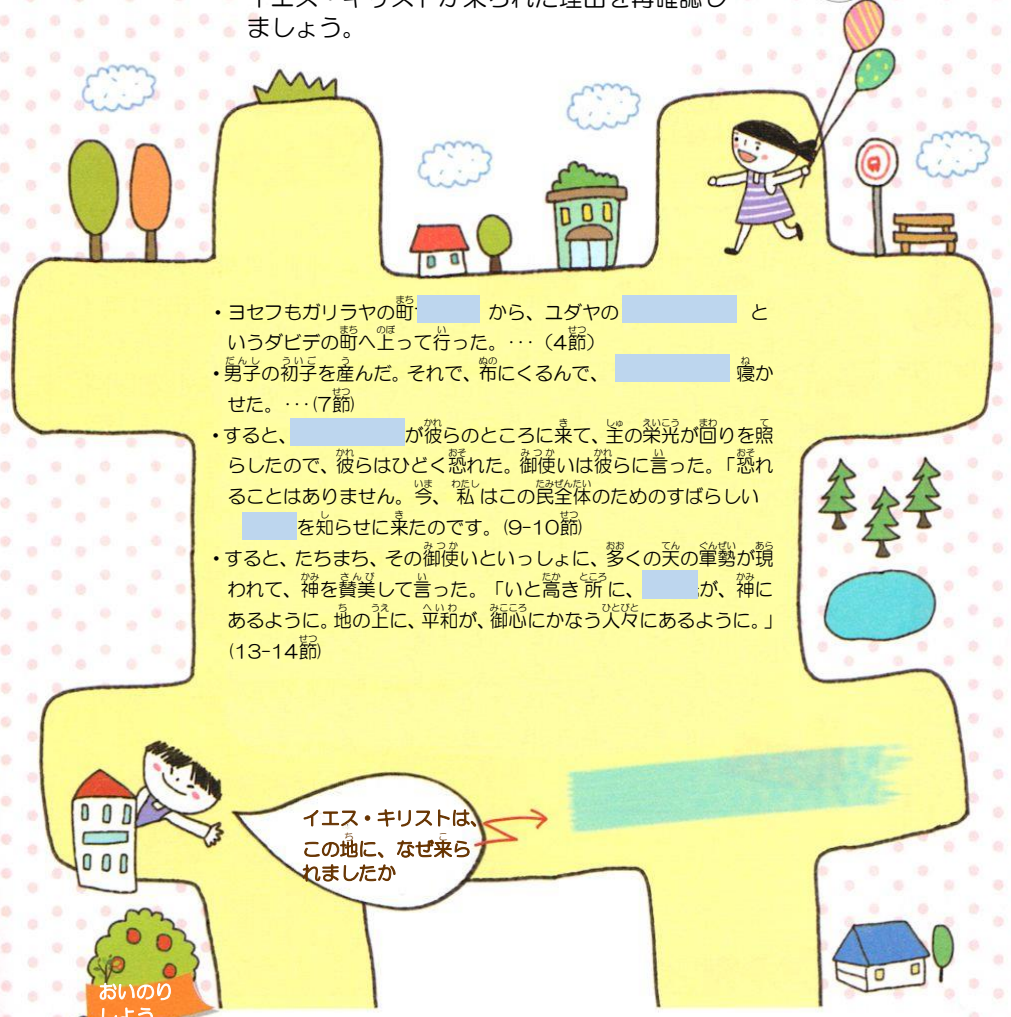 イエス・キリストが来られた理由を再確認し
ましょう。
・ヨセフもガリラヤの町 から、ユダヤの と
いうダビデの町へ上って行った。・・・（4節）
・男子の初子を産んだ。それで、布にくるんで、 寝か
せた。・・・(7節)
・すると、 が彼らのところに来て、主の栄光が回りを照
らしたので、彼らはひどく恐れた。御使いは彼らに言った。「恐れ
ることはありません。今、私はこの民全体のためのすばらしい
を知らせに来たのです。(9-10節)
・すると、たちまち、その御使いといっしょに、多くの天の軍勢が現
われて、神を賛美して言った。「いと高き所に、 が、神に
あるように。地の上に、平和が、御心にかなう人々にあるように。」
(13-14節)
イエス・キリストは、
この地に、なぜ来ら
れましたか
おいのり
しよう